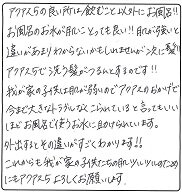 アクアス5の良い所は飲むこと以外にお風呂!!
お風呂のお水が肌にとっても良い!!肌が強いと
違いがあまりわからないかもしれませんが次に髪!!
アクアス5で洗う髪がつるんとするのです!!
我が家の子供は肌が弱いのでアクアスのおかげで
今まで大きなトラブルなくこられていると言ってもいい
ほどお風呂で使うお水に助けられています。
外出するとその違いがすごくわかります!!
これからも我が家の子供たちの肌ツルツルのため
にもアクアス5よろしくお願いします。